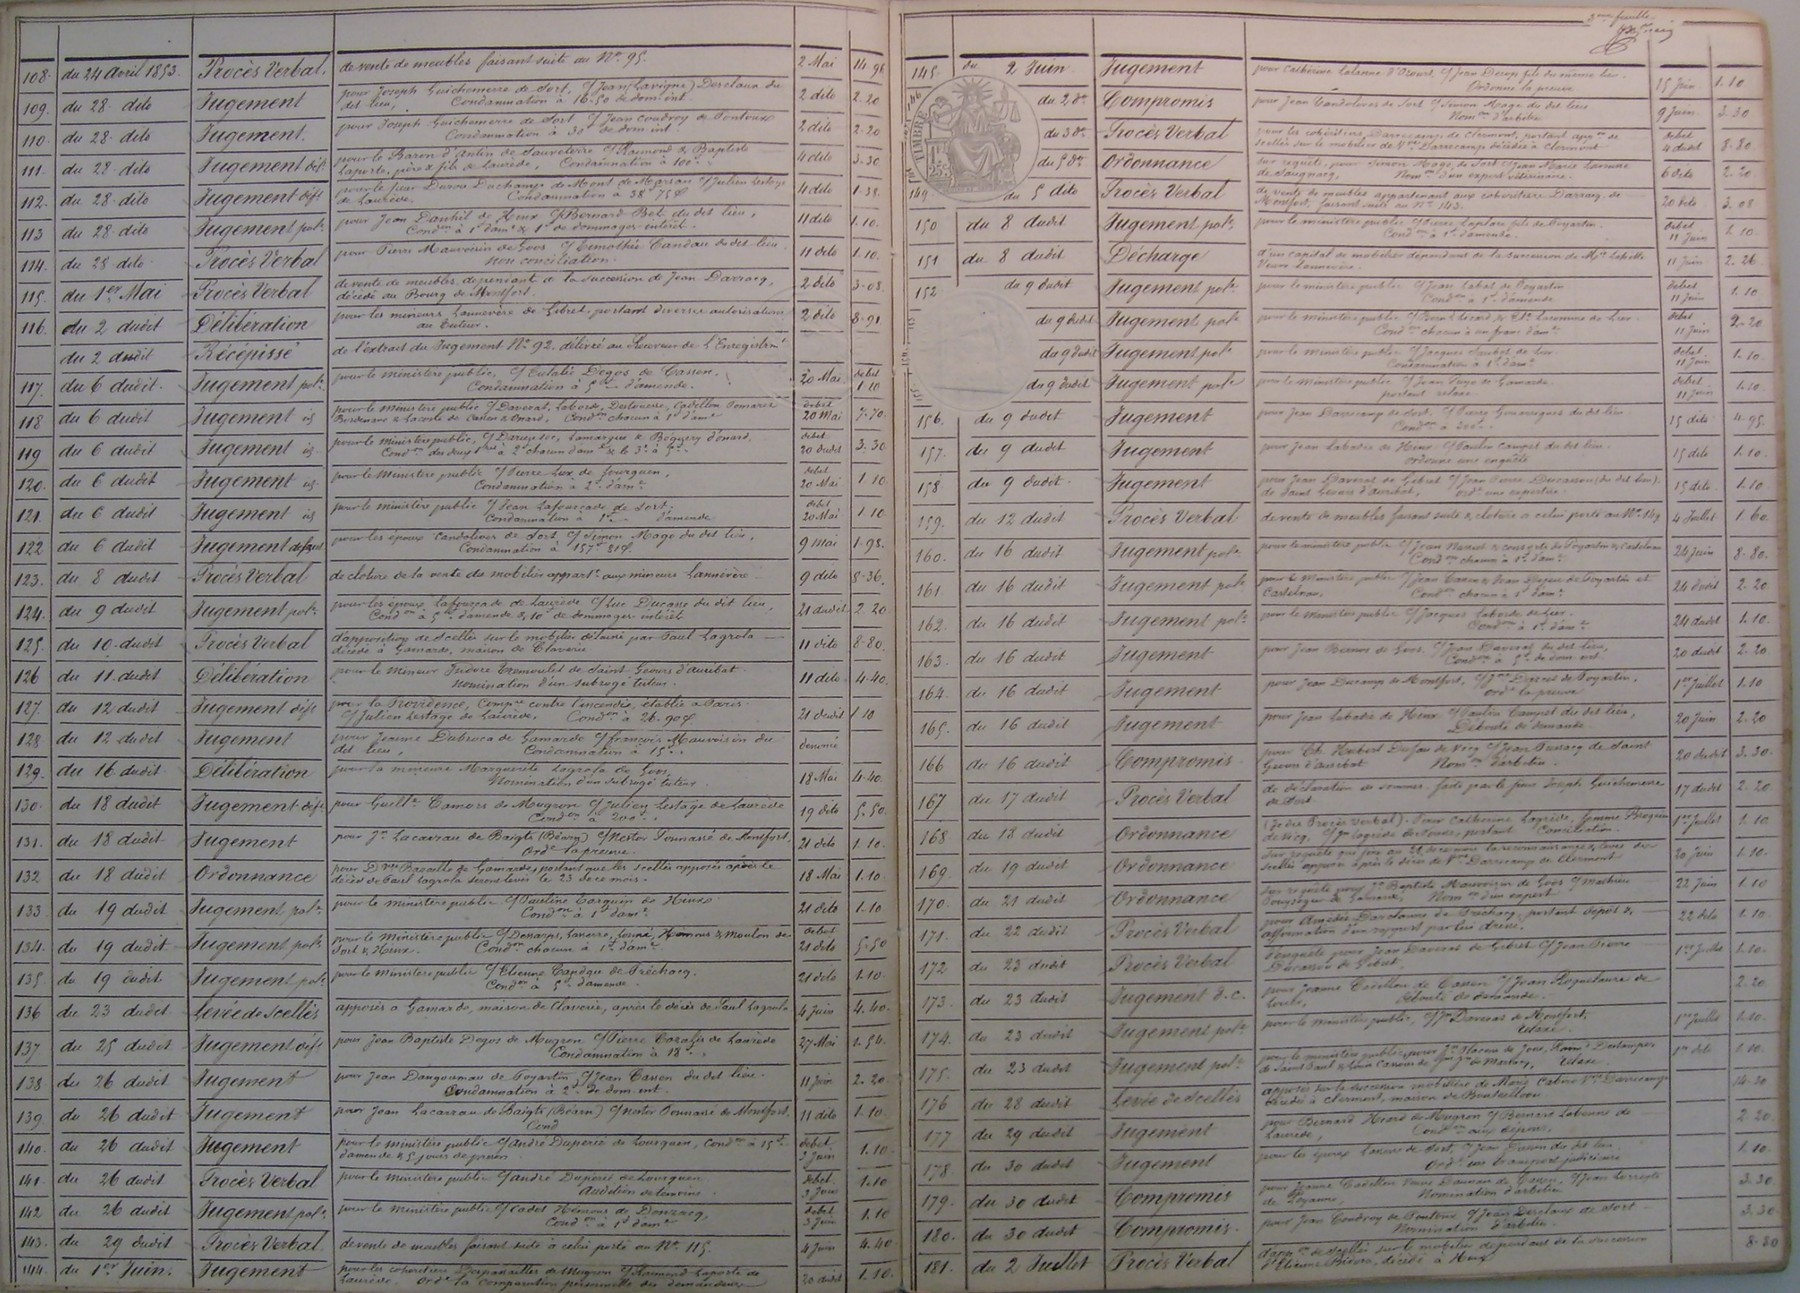 108. du 24 Avril 1853. Procès Verbal. de vente de meubles faisant suite au N° 95. 2 Mai 14 96
109. du 28 dito Jugement pour Joseph Guichemerre de Sort, C/ Jean (Lavigne) Desclaux du 2 dito 2.20
dit lieu, Condamnation à 16f50 de dom. int.
110. du 28 dito Jugement. pour Joseph Guichemerre de Sort C/ Jean Coudroy de Pontonx 2 dito 2.20
Condamnation à 30f de dom. int.
111. du 28 dito Jugement déft pour le Baron d'Antin de Sauveterre C/ Raimond & Baptiste 4 dito 3.30
Laporte, père & fils de Laurède, Condamnation à 100f.
112. du 28 dito Jugement déft pour le sieur Duchamp de Mont de Marsan C/ Julien Lestage 4 dito
de Laurède. Condamnation à 38f 75c
113 du 28 dito Jugement polce pour Jean Danhil de Hinx C/ Bernard du dit lieu, 11 dito 1.10.
Condon à 1f d'amde & 1f de dommages-intérêt.
114. du 28 dito Procès Verbal pour Pierre Mauvoisin de Goos C/ Timothée Candau du dit lieu. 11 dito 1.10.
Non conciliation.
115. du 1er Mai Procès Verbal de vente de meubles, dépendant de la succession de Jean Darracq, 2 dito 3-08.
décédé au Bourg de Montfort.
116. du 2 dudit Délibération pour les mineurs Lannevère de Gibret, portant diverses autorisations 2 dito 8-91
au tuteur.
du 2 dudit Récépissé de l'extrait du Jugement N° 92. délivré au Receveur de l'Enregistremt
117. du 6 dudit. Jugement polce pour le ministère public, C/ Eulalie Degos de Cassen. 20 Mai débet 1.10
Condamnation à 5f d'amende.
118 du 6 dudit Jugement id pour le ministère public C/ Daverat, Laborde, Destouesse, Cadillon, débet 20 Mai 7.70.
Bordenave & Lacoste de Cassen & Onard, Condon chacun à 1f d'amde
119 du 6 dudit Jugement id pour le ministère public, C/ Lamarque & d'Onard, débet 20 dudit 3.30
Condon des deux 1ers à 2f chacun d'amde & le 3e à 5f
120. du 6 dudit Jugement id pour le Ministère public C/ Pierre Lux de Gourquen, débet 20 Mai 1.10
Condamnation à 2f d'amde
121. du 6 dudit Jugement id pour le ministère public C/ Jean Lafourcade de Sort. débet 20 Mai 1.10
Condamnation à 1f d'amende
122 du 6 dudit Jugement défaut pour les époux Candolives de Sort C/ Simon Mage du dit lieu, 9 Mai 1.98.
Condamnation à 157f 81c.
123. du 8 dudit Procès Verbal de cloture de la vente du mobilier appartt aux mineurs Lannevère 9 dito 5-36.
124. du 9 dudit Jugement polce pour les époux Lafourcade de Laurède C/ Luc Ducasse du dit lieu, 21 dudit 2.20
Condon à 5f d'amende & 10f de dommages-intérêt.
125. du 10 dudit Procès Verbal d'apposition de scellés sur le mobilier délaissé par Paul Lagrola 11 dito 8.80.
décédé à Gamarde, maison de Claverie
126 du 11 dudit Délibération pour le mineur Isidore de Saint Geours d'auribat. 11 dito 4.40.
Nomination d'un subrogé tuteur.
127. du 12 dudit Jugement déft pour la Providence, Compnie contre l'incendie, établie à Paris 21 dudit 1.10
C/ Julien Lestage de Laurède, Condon à 26.90c
128 du 12 dudit Jugement pour Jeanne Dubroca de Gamarde C/ françois Mauvoisin du
dit lieu, Condamnation à 15f.
129. du 16 dudit Délibération pour la mineure Marguerite Lagrola de Goos, 18 Mai 4.40.
Nomination d'un subrogé tuteur.
130. du 18 dudit Jugement déft pour Guillme Camors de Mugron C/ Julien Lestage de Laurède 19 dito 5.50.
Condon à 200f.
131. du 18 dudit Jugement pour Jn Lacarrau de Baigts (Béarn) C/ Nestor Tonnarré de Montfort, 21 dito 1.10.
Orde la preuve.
132 du 18 dudit Ordonnance pour Dlle Bazaille de Gamarde, portant que les scellés apposés après le 18 Mai 1.10.
décès de Paul Lagrola seront levés le 23 de ce mois.
133 du 19 dudit Jugement polce pour le ministère public C/ Pauline Casquen de Hinx 21 dito 1.10
Condon à 1f d'amde
134. du 19 dudit Jugement polce pour le Ministère public C/ débet 21 dito 5.50
Sort & Hinx. Condon chacun à 1f d'amde
135. du 19 dudit Jugement polce pour le ministère public C/ Etienne Candau de Préchacq. 21 dito 1.10.
Condon à 5f d'amende.
136 du 23 dudit Levée de Scellés apposés à Gamarde, maison de Claverie, après le décès de Paul Lagrola 4 Juin 4.40.
137 du 25 dudit Jugement déft pour Jean Baptiste Degos de Mugron C/ Pierre de Laurède 27 Mai 1.54.
Condamnation à 18f.
138 du 26 dudit Jugement pour Jean Dangoumau de Poyartin C/ Jean Cassen du dit lieu. 11 Juin 2.20.
Condamnation à 2f de dom. int.
139 du 26 dudit Jugement pour Jean Lacarrau de Baigts (Béarn) C/ Nestor Tonnarré de Montfort. 11 dito 1.10.
Cond
140. du 26 dudit Jugement pour le ministère public C/ André Duperié de Lourquen, Condon à 15f débet 3 Juin 1.10.
d'amende & 5 jours de prison.
141. du 26 dudit Procès Verbal pour le ministère public C/ André Duperié de Lourquen débet. 3 Juin 1.10
Audition de témoins.
142 du 26 dudit Jugement polce pour le ministère public C/ Cadet Hémous de Donzacq, débet 3 Juin 1.10
Condon à 1f d'amde
143. du 29 dudit Procès Verbal. de vente de meubles faisant suite à celui porté au N° 115. 4 Juin 4.40
144. du 1er Juin. Jugement pour les cohéritiers de Mugron C/ Raimond Laporte de 20 dudit 1.10.
Laurède. Orde la comparution personnelle des demandeurs
3eme feuille
145. du 2 Juin Jugement pour Catherine Lalanne C/ Jean fils du même lieu. 15 Juin 1.10
Ordonne la preuve
146 du 2 do Compromis pour Jean Candolives de Sort C/ Simon Mage du dit lieu 9 Juin 3.30
Nomon d'arbitre
TIMBRE 1F. 25C.
du 3 do Procès Verbal pour les cohéritiers Darrecamp de Clermont, portant appon de débet 4 dudit 8-80.
scellés sur le mobilier de Vve Darrecamp décédée à Clermont
du 5 do Ordonnance sur requête, pour Simon Mage de Sort C/ Jean Marie 6 dito 2.20
de Saugnacq, Nomon d'un expert vétérinaire.
149 du 5 dito Procès Verbal de vente de meubles appartenant aux cohéritiers Darracq de 20 dito 3.08
Montfort, faisant suite au N° 143.
150 du 8 dudit Jugement polce pour le ministère public C/ Pierre Laplace fils de Poyartin. débet 11 Juin 1.10
Condon à 1f d'amende.
151 du 8 dudit Décharge d'un capital de mobilier dépendant de la succession de Mr Labille 11 Juin 2.26
Veuve Lannevère.
152 du 9 dudit Jugement polce pour le ministère public C/ Jean Labat de Poyartin débet 11 Juin 1.10
Condon à 1f d'amende
du 9 dudit Jugement polce pour le ministère public débet 11 Juin 2-20
Condon chacun à un franc d'amde
154. du 9 dudit Jugement polce pour le ministère public C/ Jacques débet 11 Juin 1.10
Condamnation à 1f d'amde
155 du 9 dudit Jugement polce pour le ministère public C/ Jean de Gamarde débet 11 Juin 1.10
portant relaxe.
156. du 9 dudit Jugement pour Jean Darrecamp de Sort, C/ Pierre du dit lieu 15 dito 4.95
Condon à 200f.
157. du 9 dudit Jugement pour Jean Labadie de Hinx C/ Paulin Campet du dit lieu. 15 dito 1.10.
Ordonne une enquête
158 du 9 dudit. Jugement pour Jean Daverat de Gibret C/ Jean Pierre Ducasson (du dit lieu) 15 dito. 1.10
de Saint Geours d'auribat, Orde une expertise.
159. du 12 dudit Procès Verbal de vente de meubles faisant suite & cloture à celui porté au N° 149 4 Juillet 1.60
160. du 16 dudit Jugement polce pour le ministère public C/ Jean & consorts de Poyartin & Castelnau 24 Juin 8-80.
Condon chacun à 1f d'amde
161. du 16 dudit Jugement polce pour le Ministère public C/ Jean & Jean de Poyartin et 24 dudit 2.20
Castelnau, Condon chacun à 1f d'amde
162. du 16 dudit Jugement polce pour le ministère public C/ Jacques Laborde 24 dudit 1.10.
Condon à 1f d'amde
163. du 16 dudit Jugement pour Jean de Goos. C/ Jean Daverat du dit lieu, 20 dudit 2.20
Condon à 5f de dom. int.
164. du 16 dudit Jugement pour Jean Ducamp de Montfort, C/ de Poyartin, 1er Juillet 1.10
Orde la preuve
165. du 16 dudit Jugement pour Jean Labadie de Hinx C/ Paulin Campet du dit lieu, 20 Juin 2.20
Déboute de demande
166 du 16 dudit Compromis pour Ch. Hubert Dufau de Vicq C/ Jean de Saint 20 dudit 3.30.
Geours d'auribat Nomon d'arbitre.
167 du 17 dudit Procès Verbal de déclaration de sommes faite par le sieur Joseph Guichemerre 17 dudit 2.20
de Sort.
168 du 18 dudit Ordonnance (Procès Verbal). Pour Catherine Lagrède, femme 1er Juillet 1.10
de Vicq, portant Conciliation.
169. du 19 dudit Ordonnance sur requête que jour au 28 de ce mois la reconnaissance & levée des 20 Juin 1.10
scellés apposés après le décès de Vve Darrecamp de Clermont
170. du 21 dudit Ordonnance sur requête pour Jn Baptiste Mauvoisin de Goos C/ Mathieu 22 Juin 1.10
de Gamarde, Nomon d'un expert
171. du 22 dudit Procès Verbal pour Amédée Darclanne de Préchacq, portant dépôt & 22 dito 1.10.
affirmation d'un rapport par lui dressé.
172 du 23 dudit Procès Verbal d'enquête pour Jean Daverat de Gibret C/ Jean Pierre 1er Juillet 1.10.
Ducasson de Gibret.
173. du 23 dudit Jugement d.c. pour Jeanne Cadillon de Cassen C/ Jean Roquelaure de 2.20
Louer, déboute de demande.
174. du 23 dudit Jugement polce pour le ministère public, C/ Jn Daverat de Montfort, 1er Juillet 1.10.
relaxe.
175. du 23 dudit Jugement polce pour le ministère public 1er dito 1.10
relaxe
176 du 28 dudit Levée de Scellés apposés sur la succession mobilière de Marie Vve Darrecamp 14-30
décédée à Clermont, maison de
177 du 29 dudit Jugement pour Bernard de Mugron C/ Bernard Labenne de 2.20.
Laurède, Condon aux dépens.
178 du 30 dudit Jugement pour les époux de Sort, C/ Jean du dit lieu, 1.10.
Orde un transport judiciaire
179. du 30 dudit Compromis pour Jeanne Cadillon Veuve de Cassen, C/ Jean 3.30
de Poyanne, Nomination d'arbitre
180. du 30 dudit Compromis. pour Jean Coudroy de Pontonx C/ Jean Desclaux de Sort 3.30
Nomination d'arbitre.
181. du 2 Juillet Procès Verbal d'appon de scellés sur le mobilier dépendant de la succession 8-80
d'Etienne décédé à Hinx